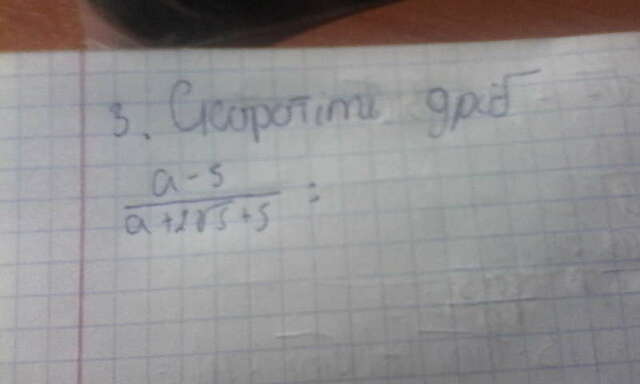 3. Скоротіти дріб
a-5
a+2√5+5 =